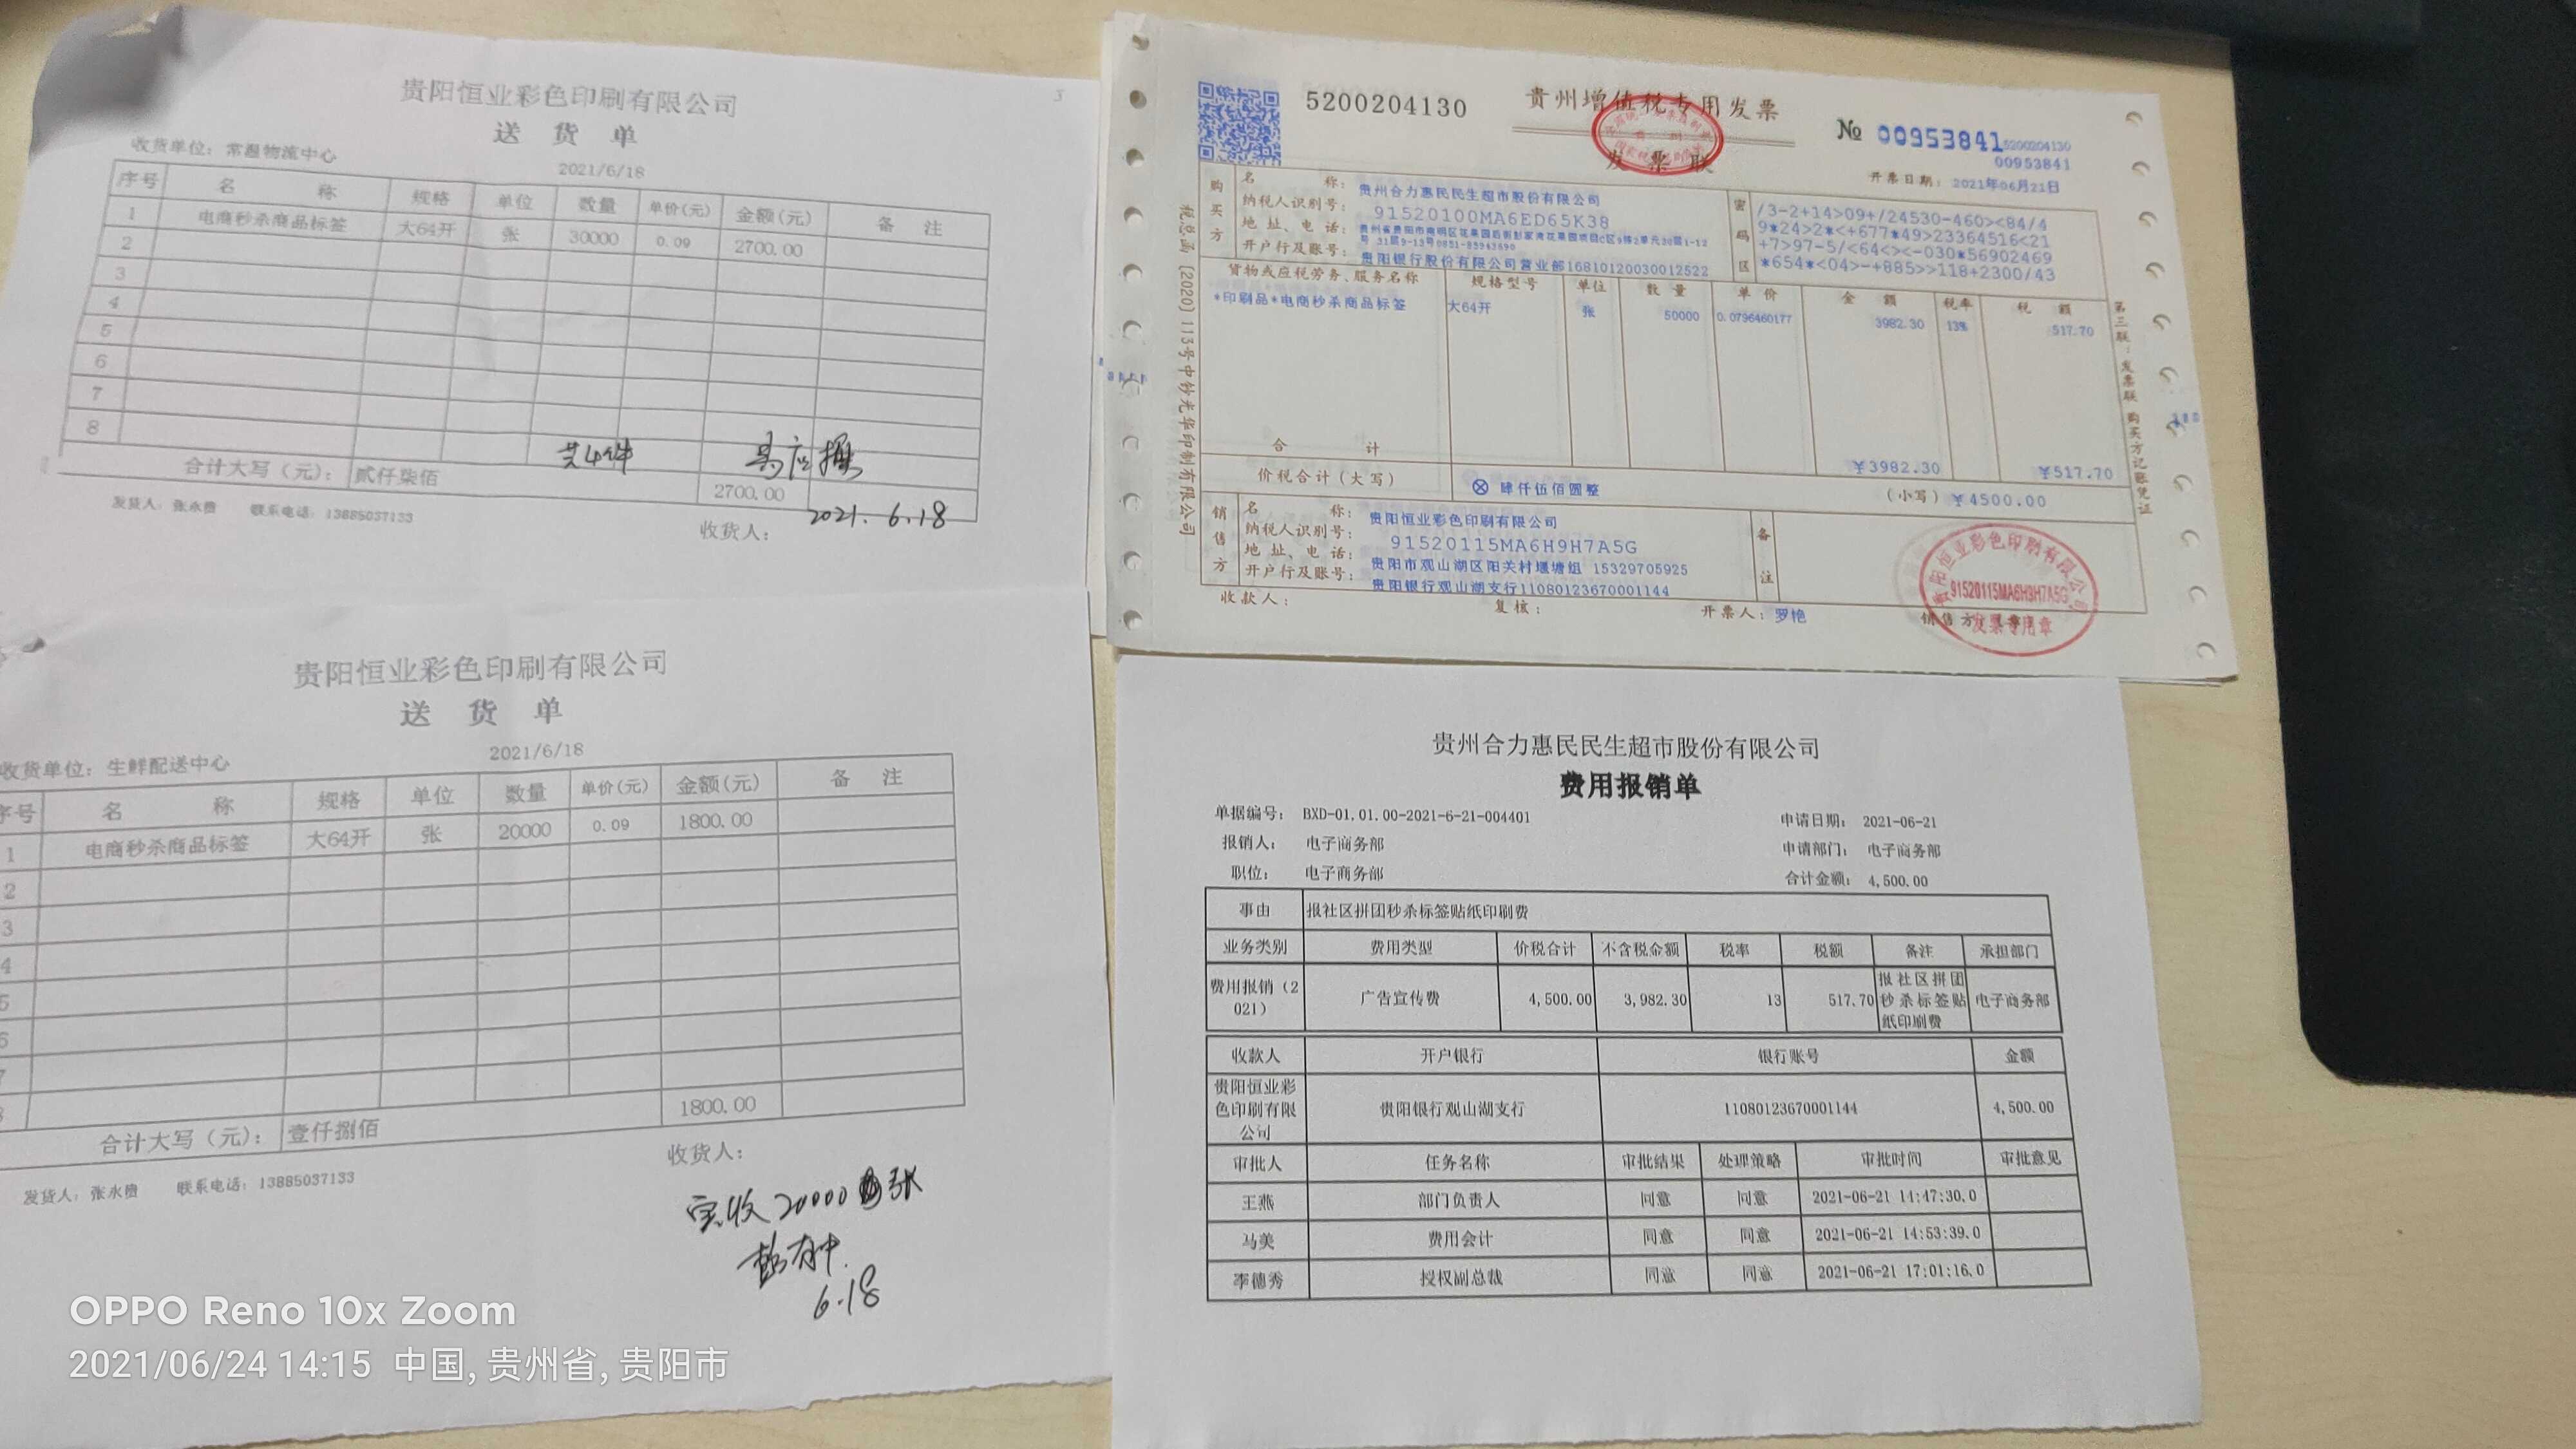 贵阳恒业彩色印刷有限公司
送 货 单
收货单位：常温物流中心
2021/6/18
序号 名 称 规格 单位 数量 单价(元) 金额(元) 备 注
1 电商秒杀商品标签 大64开 张 30000 0.09 2700.00
2
3
4
5
6
7
8
共4件
合计大写（元）： 贰仟柒佰 2700.00
发货人：张永贵 联系电话：13885037133 收货人：
2021.6.18
贵阳恒业彩色印刷有限公司
送 货 单
收货单位：生鲜配送中心
2021/6/18
序号 名 称 规格 单位 数量 单价(元) 金额(元) 备 注
1 电商秒杀商品标签 大64开 张 20000 0.09 1800.00
2
3
4
5
6
7
8
1800.00
合计大写（元）： 壹仟捌佰
发货人：张永贵 联系电话：13885037133 收货人：
实收20000张
6.18
5200204130 贵州增值税专用发票 № 00953841 5200204130
00953841
发 票 联
开票日期：2021年06月21日
购买方
名 称：贵州合力惠民民生超市股份有限公司
纳税人识别号：91520100MA6ED65K38
地 址、电 话：
开户行及账号：贵阳银行股份有限公司营业部16810120030012522
密码区
/3-2+14>09+/24530-460><84/4
9*24>2*<+677*49>23364516<21
+7>97-5/<64<><-030*56902469
*654*<04>-+885>>118+2300/43
货物或应税劳务、服务名称 规格型号 单位 数 量 单 价 金 额 税率 税 额
*印刷品*电商秒杀商品标签 大64开 张 50000 0.0796460177 3982.30 13% 517.70
合 计 ￥3982.30 ￥517.70
价税合计（大写） ⊗ 肆仟伍佰圆整 （小写）￥4500.00
销售方
名 称：贵阳恒业彩色印刷有限公司
纳税人识别号：91520115MA6H9H7A5G
地 址、电 话：贵阳市观山湖区阳关村堰塘组 15329705925
开户行及账号：贵阳银行观山湖支行11080123670001144
备注
收款人： 复核： 开票人：罗艳 销售方
税总函 [2020] 113号中钞光华印制有限公司
第三联：发票联 购买方记账凭证
贵阳恒业彩色印刷有限公司
91520115MA6H9H7A5G
发票专用章
贵州合力惠民民生超市股份有限公司
费用报销单
单据编号： BXD-01.01.00-2021-6-21-004401 申请日期： 2021-06-21
报销人： 电子商务部 申请部门： 电子商务部
职位： 电子商务部 合计金额： 4,500.00
事由 报社区拼团秒杀标签贴纸印刷费
业务类别 费用类型 价税合计 不含税金额 税率 税额 备注 承担部门
费用报销（2021） 广告宣传费 4,500.00 3,982.30 13 517.70 报社区拼团秒杀标签贴纸印刷费 电子商务部
收款人 开户银行 银行账号 金额
贵阳恒业彩色印刷有限公司 贵阳银行观山湖支行 11080123670001144 4,500.00
审批人 任务名称 审批结果 处理策略 审批时间 审批意见
王燕 部门负责人 同意 同意 2021-06-21 14:47:30.0
马美 费用会计 同意 同意 2021-06-21 14:53:39.0
李德秀 授权副总裁 同意 同意 2021-06-21 17:01:16.0
OPPO Reno 10x Zoom
2021/06/24 14:15 中国, 贵州省, 贵阳市